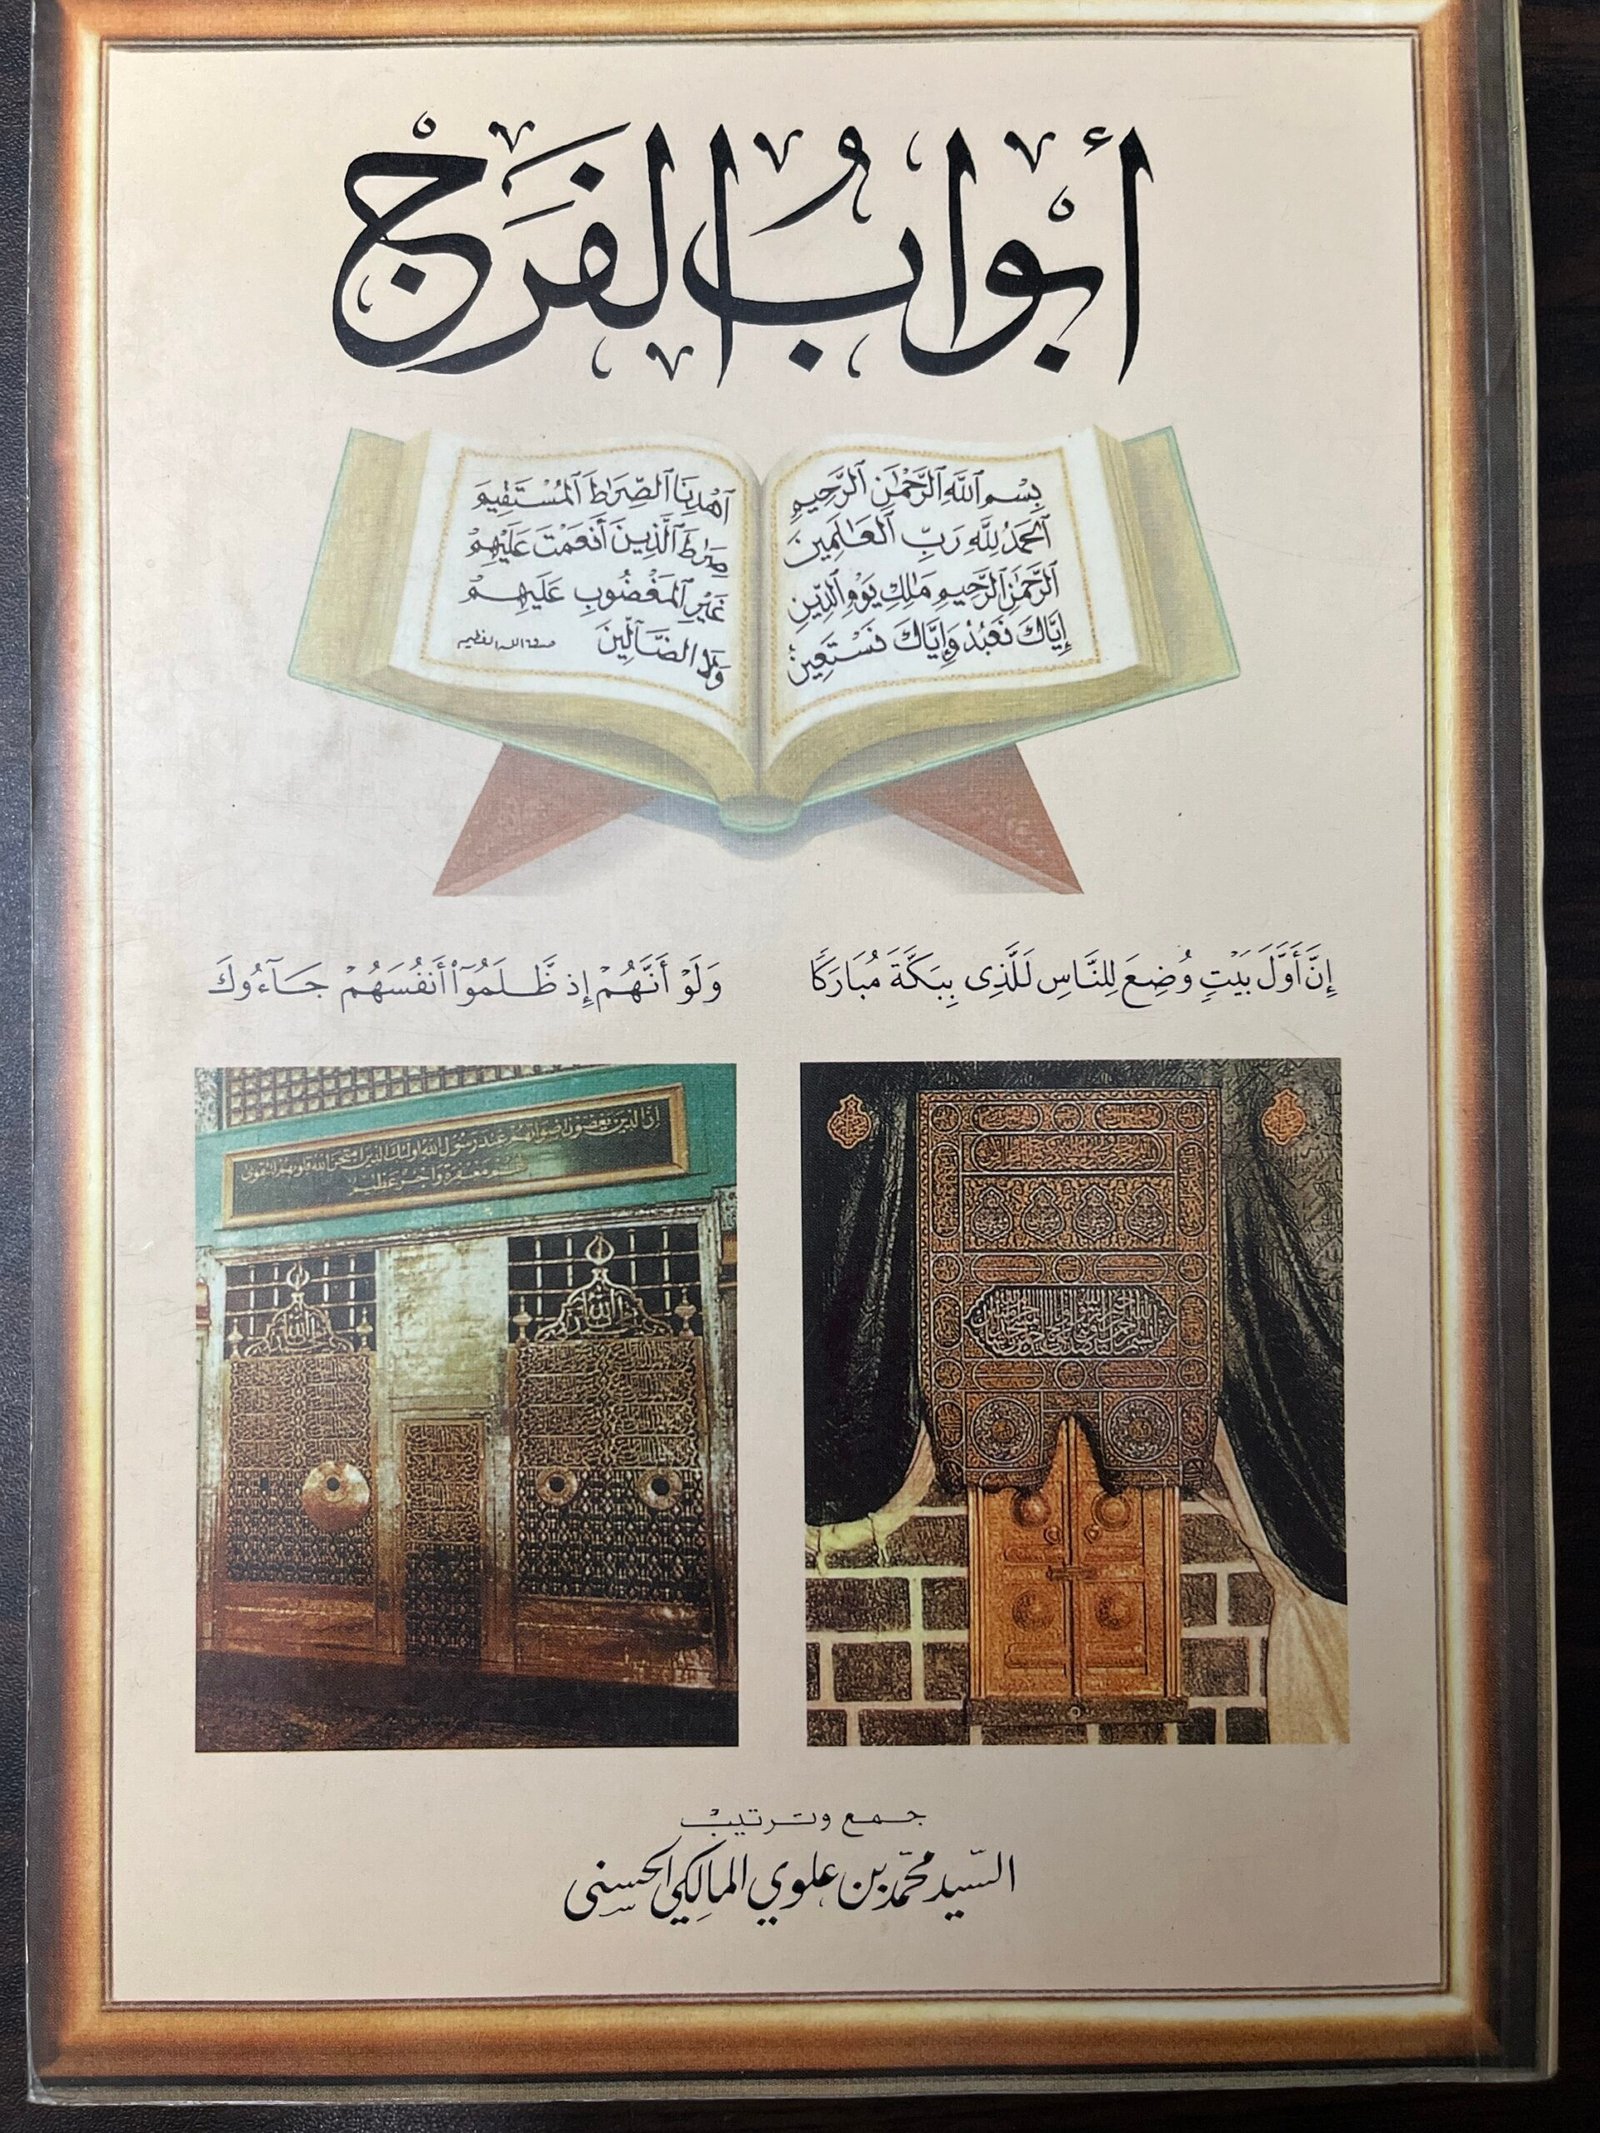 أَبْوَابُ الفَرَج
بِسْمِ ٱللَّهِ ٱلرَّحْمَٰنِ ٱلرَّحِيمِ
ٱلْحَمْدُ لِلَّهِ رَبِّ ٱلْعَٰلَمِينَ
ٱلرَّحْمَٰنِ ٱلرَّحِيمِ مَٰلِكِ يَوْمِ ٱلدِّينِ
إِيَّاكَ نَعْبُدُ وَإِيَّاكَ نَسْتَعِينُ
ٱهْدِنَا ٱلصِّرَٰطَ ٱلْمُسْتَقِيمَ
صِرَٰطَ ٱلَّذِينَ أَنْعَمْتَ عَلَيْهِمْ
غَيْرِ ٱلْمَغْضُوبِ عَلَيْهِمْ
وَلَا ٱلضَّآلِّينَ صدق الله العظيم
إِنَّ أَوَّلَ بَيْتٍ وُضِعَ لِلنَّاسِ لَلَّذِى بِبَكَّةَ مُبَارَكًا
وَلَوْ أَنَّهُمْ إِذ ظَّلَمُوٓا۟ أَنفُسَهُمْ جَآءُوكَ
إن الذين يغضون أصواتهم عند رسول الله أولئك الذين امتحن الله قلوبهم للتقوى
لهم مغفرة وأجر عظيم
الله
الله
جمع وترتيب
السّيد محمّد بن علوي المالكي الحسني